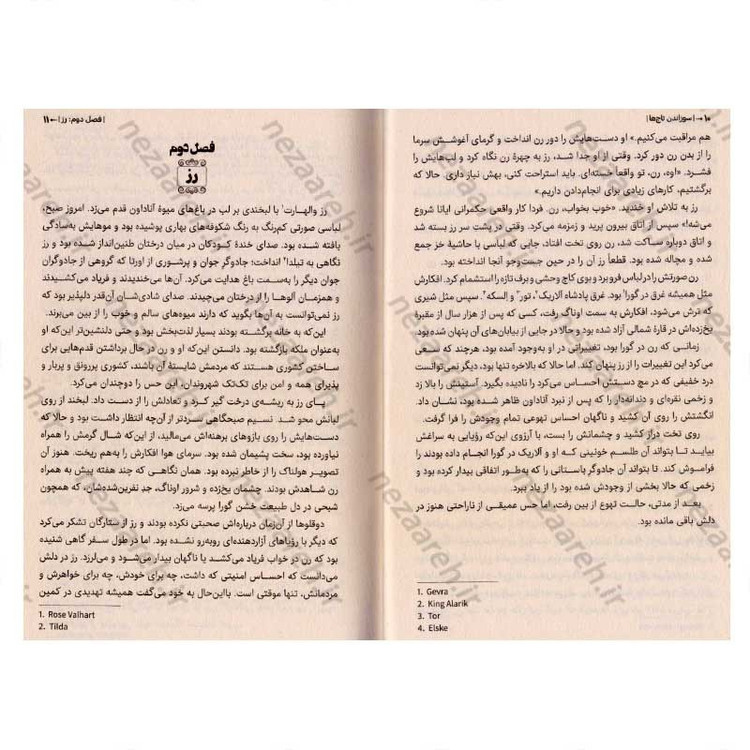 ۱۰ | سوزاندن تاج‌ها |
هم مراقبت می‌کنیم.» او دست‌هایش را دور رن انداخت و گرمای آغوشش سرما
را از بدن رن دور کرد. وقتی از او جدا شد، رز به چهرهٔ رن نگاه کرد و لب‌هایش را
فشرد. «اوه، رن، تو واقعاً خسته‌ای. باید استراحت کنی، بهش نیاز داری. حالا که
برگشتیم، کارهای زیادی برای انجام‌دادن داریم.»
رز به تلاش او خندید. «خوب بخواب، رن. فردا کار واقعی حکمرانی ایانا شروع
می‌شه!» سپس از اتاق بیرون پرید و زمزمه می‌کرد. وقتی در پشت سر رز بسته شد
و اتاق دوباره ساکت شد، رن روی تخت افتاد، جایی که لباسی با حاشیهٔ خز جمع
شده و مچاله شده بود. قطعاً رز آن را در حین جست‌وجو آنجا انداخته بود.
رن صورتش را در لباس فرو برد و بوی کاج وحشی و برف تازه را استشمام کرد. افکارش
مثل همیشه غرق در گورا¹ بود. غرق پادشاه آلاریک²، تور³ و السکه⁴. سپس مثل شیری
که ترش می‌شود، افکارش به سمت اوناگ رفت، کسی که پس از هزار سال از مقبرهٔ
یخ‌زده‌اش در قارهٔ شمالی آزاد شده بود و حالا در جایی از بیابان‌های آن پنهان شده بود.
زمانی که رن در گورا بود، تغییراتی در او به‌وجود آمده بود، هرچند که سعی
می‌کرد این تغییرات را از رز پنهان کند. اما حالا که بالاخره تنها بود، دیگر نمی‌توانست
درد خفیفی که در مچ دستش احساس می‌کرد را نادیده بگیرد. آستینش را بالا زد
و زخمی نقره‌ای و دندانه‌دار را که پس از نبرد آناداون ظاهر شده بود، نشان داد.
انگشتش را روی آن کشید و ناگهان احساس تهوعی تمام وجودش را فرا گرفت.
روی تخت دراز کشید و چشمانش را بست، با آرزوی این‌که رؤیایی به سراغش
بیاید تا بتواند آن طلسم خونینی که او و آلاریک در گورا انجام داده بودند را
فراموش کند. تا بتواند آن جادوگر باستانی را که به‌طور اتفاقی بیدار کرده بود و
زخمی که حالا بخشی از وجودش شده بود را از یاد ببرد.
بعد از مدتی، حالت تهوع از بین رفت، اما حس عمیقی از ناراحتی هنوز در
دلش باقی مانده بود.
1. Gevra
2. King Alarik
3. Tor
4. Elske
| فصل دوم: رز | ۱۱
فصل دوم
رز
رز والهارت¹ با لبخندی بر لب در باغ‌های میوهٔ آناداون قدم می‌زد. امروز صبح،
لباسی صورتی کم‌رنگ به رنگ شکوفه‌های بهاری پوشیده بود و موهایش به‌سادگی
بافته شده بود. صدای خندهٔ کودکان در میان درختان طنین‌انداز شده بود و رز
نگاهی به تیلدا² انداخت؛ جادوگر جوان و پرشوری از اورتا که گروهی از جادوگران
جوان دیگر را به‌سمت باغ هدایت می‌کرد. آن‌ها می‌خندیدند و فریاد می‌کشیدند
و همزمان آلوها را از درختان می‌چیدند. صدای شادی‌شان آن‌قدر دلپذیر بود که
رز نمی‌توانست به آن‌ها بگوید که دارند میوه‌های سالم و خوب را از بین می‌برند.
این‌که به خانه برگشته بودند بسیار لذت‌بخش بود و حتی دلنشین‌تر این‌که او
به‌عنوان ملکه بازگشته بود. دانستن این‌که او و رن در حال برداشتن قدم‌هایی برای
ساختن کشوری هستند که مردمش شایستهٔ آن باشند، کشوری پررونق و پربار و
پذیرای همه و امن برای تک‌تک شهروندان، این حس را دوچندان می‌کرد.
پای رز به ریشه‌ی درخت گیر کرد و تعادلش را از دست داد. لبخند از روی
لبانش محو شد. نسیم صبحگاهی سردتر از آن‌چه انتظار داشت بود و حالا که
دست‌هایش را روی بازوهای برهنه‌اش می‌مالید، از این‌که شال گرمش را همراه
نیاورده بود، سخت پشیمان شده بود. سرمای هوا افکارش را به‌هم ریخت. هنوز آن
تصویر هولناک را از خاطر نبرده بود. همان نگاهی که چند هفته پیش به همراه
رن شاهدش بودند. چشمان یخ‌زده و شرور اوناگ، جد نفرین‌شده‌شان، که همچون
شبحی در دل طبیعت خشن گورا پرسه می‌زد.
دوقلوها از آن‌زمان درباره‌اش صحبتی نکرده بودند و رز از ستارگان تشکر می‌کرد
که دیگر با رؤیاهای آزاردهنده‌ای روبه‌رو نشده بود. اما در طول سفر گاهی شنیده
بود که رن در خواب فریاد می‌کشد یا ناگهان بیدار می‌شود و می‌لرزد. رز در دلش
می‌دانست که احساس امنیتی که داشت، چه برای خودش، چه برای خواهرش و
مردمانش، تنها موقتی است. بااین‌حال به خود می‌گفت همیشه تهدیدی در کمین
1. Rose Valhart
2. Tilda
nezaareh.ir